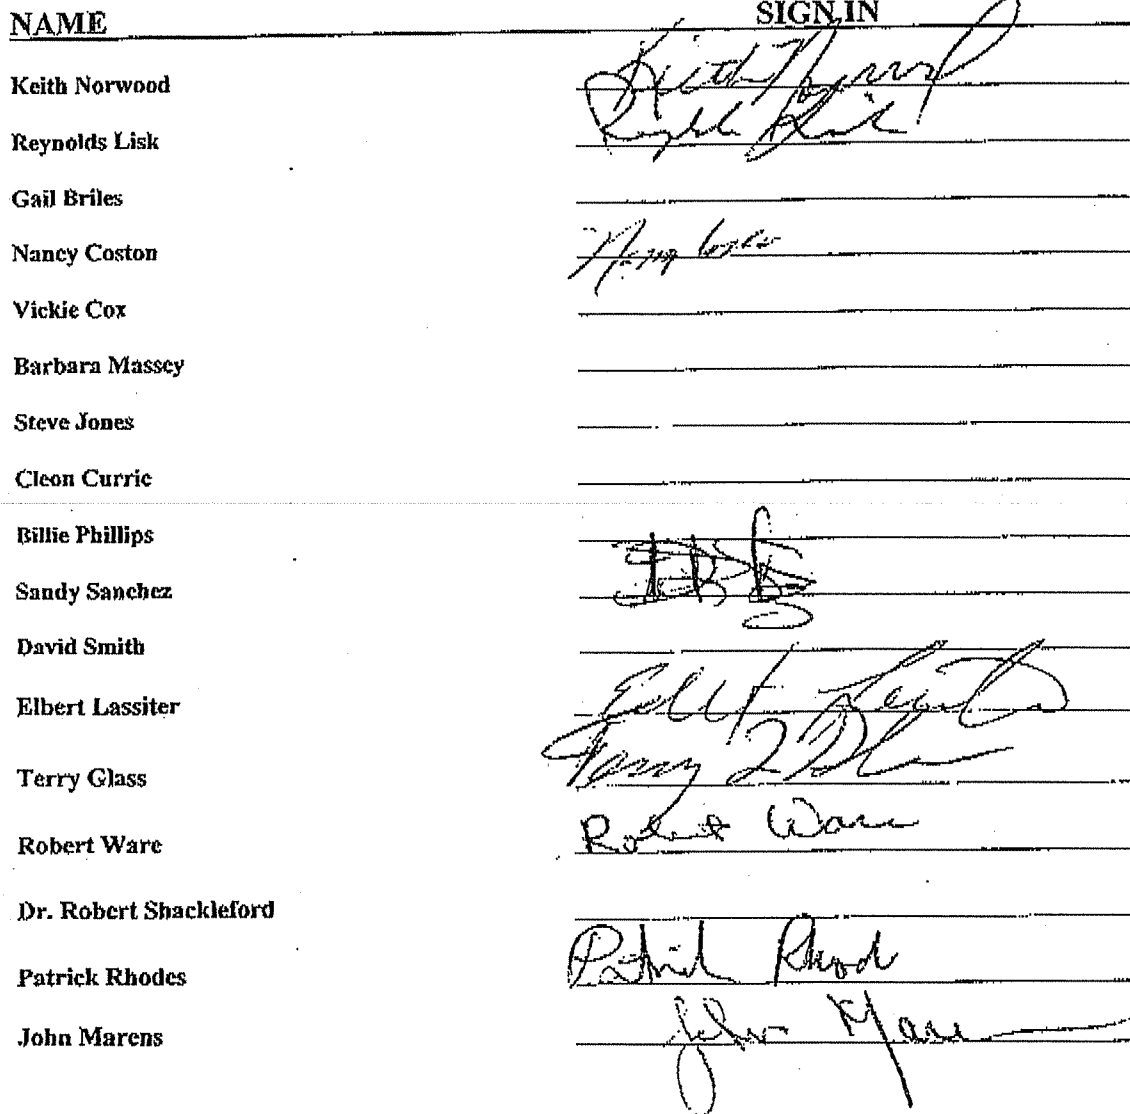 NAME SIGN IN
Keith Norwood Keith Norwood
Reynolds Lisk Reynolds Lisk
Gail Briles
Nancy Coston Nancy Coston
Vickie Cox
Barbara Massey
Steve Jones
Cleon Currie
Billie Phillips
Sandy Sanchez
David Smith
Elbert Lassiter Elbert Lassiter
Terry Glass Terry
Robert Ware Robert Ware
Dr. Robert Shackleford
Patrick Rhodes Patrick Rhodes
John Marens John